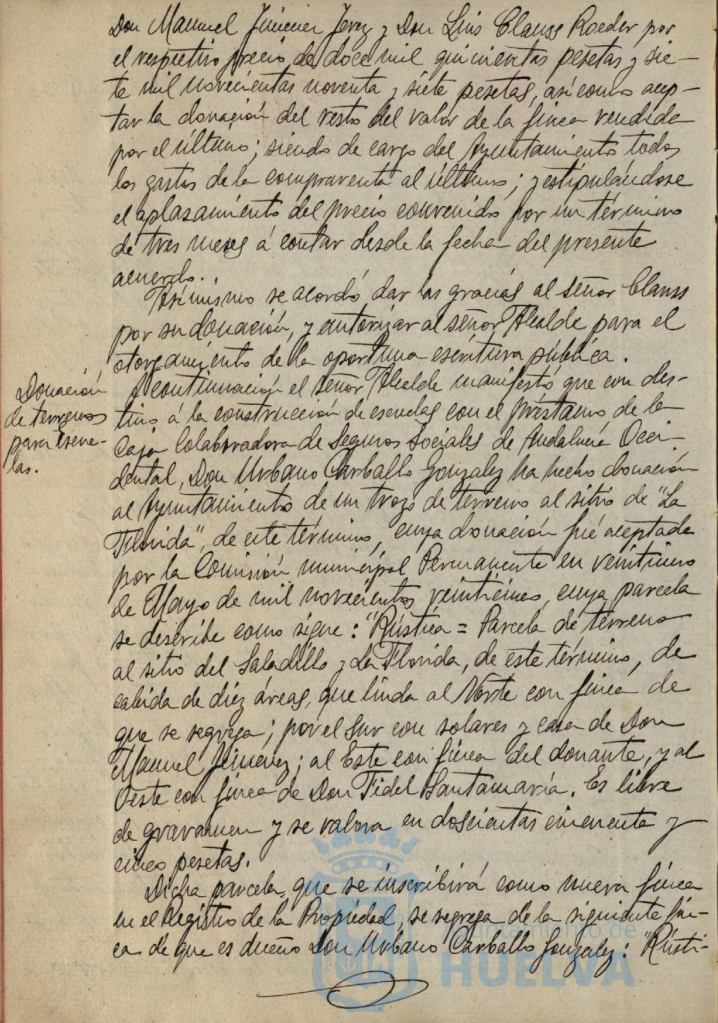 Don Manuel Jimenez Jerez y Don Luis Clauss Roeder por
el respectivo precio de doce mil quinientas pesetas y sie-
te mil novecientas noventa y siete pesetas, así como acep-
tar la donación del resto del valor de la finca vendida
por el último; siendo de cargo del Ayuntamiento todos
los gastos de la compraventa al último; y estipulándose
el aplazamiento del precio convenido por un término
de tres meses á contar desde la fecha del presente
acuerdo.
Asimismo se acordó dar las gracias al señor Clauss
por su donación, y autorizar al señor Alcalde para el
otorgamiento de la oportuna escritura pública.
Donación
de terrenos
para Escue-
las.
A continuación el señor Alcalde manifestó que con des-
tino á la construcción de escuelas con el préstamo de la
Caja Colaboradora de Seguros Sociales de Andalucía Occi-
dental, Don Urbano Carballo Gonzalez ha hecho donación
al Ayuntamiento de un trozo de terreno al sitio de "La
Florida", de este término, cuya donación fué aceptada
por la Comisión municipal Permanente en veintiuno
de Mayo de mil novecientos veinticinco, cuya parcela
se describe como sigue: "Rústica = Parcela de terreno
al sitio del Saladillo y La Florida, de este término, de
cabida de diez áreas, que linda al Norte con finca de
que se segrega; por el Sur con solares y casa de Don
Manuel Jimenez; al Este con finca del donante, y al
Oeste con finca de Don Fidel Santamaría. Es libre
de gravamen y se valora en doscientas cincuenta y
cinco pesetas.
Dicha parcela, que se inscribirá como nueva finca
en el Registro de la Propiedad, se segrega de la siguiente fin-
ca de que es dueño Don Urbano Carballo Gonzalez: "Rústi-
Ayuntamiento de
HUELVA